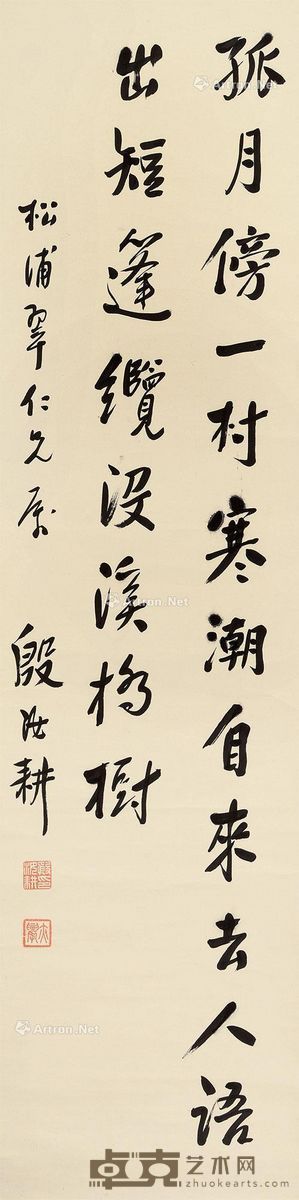 孤月傍一村寒潮自來去人語
出短篷纜没溪橋樹
松浦翠仁兄属
殷汝耕
Artron.Net
Artron.Net
Artron.Net
卓克艺术网
zhuokearts.com